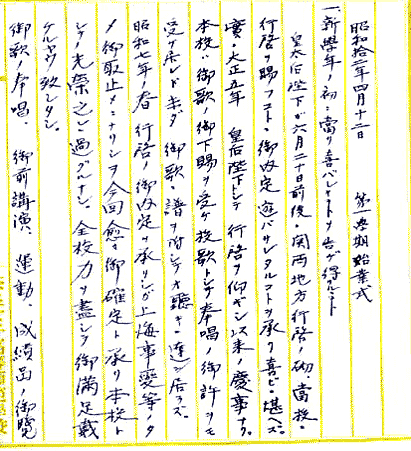 昭和拾二年四月十二日　第一学期始業式
一、新學年ノ初ニ當リ喜バシキコトヲ告ゲ得ルコト
皇太后陛下ガ六月二十日前後、関西地方行啓ノ砌、當校ニ
行啓ヲ賜フコトニ御内定遊バサレタルコトヲ承リ喜ビニ堪ヘズ。
實ニ大正五年　皇后陛下トシテ行啓ヲ仰ギシ以来ノ慶事ナリ。
本校ハ御歌ノ御下賜ヲ受ケ校歌トシテ奉唱ノ御許ヲモ
受ケ居レド未ダ御歌ノ譜ヲ附シテオ聽キニ達シ居ラズ。
昭和七年ノ春　行啓ノ御内定ヲ承リシガ上海事變等ノタ
メ御取止メニナリシヲ今回愈々御確定ト承リ本校ト
シテノ光榮之ニ過グルナシ。全校力ヲ盡シテ御満足戴
ケルヤウ致シタシ。
御歌ノ奉唱、御前講演、運動、成績品ノ御覧